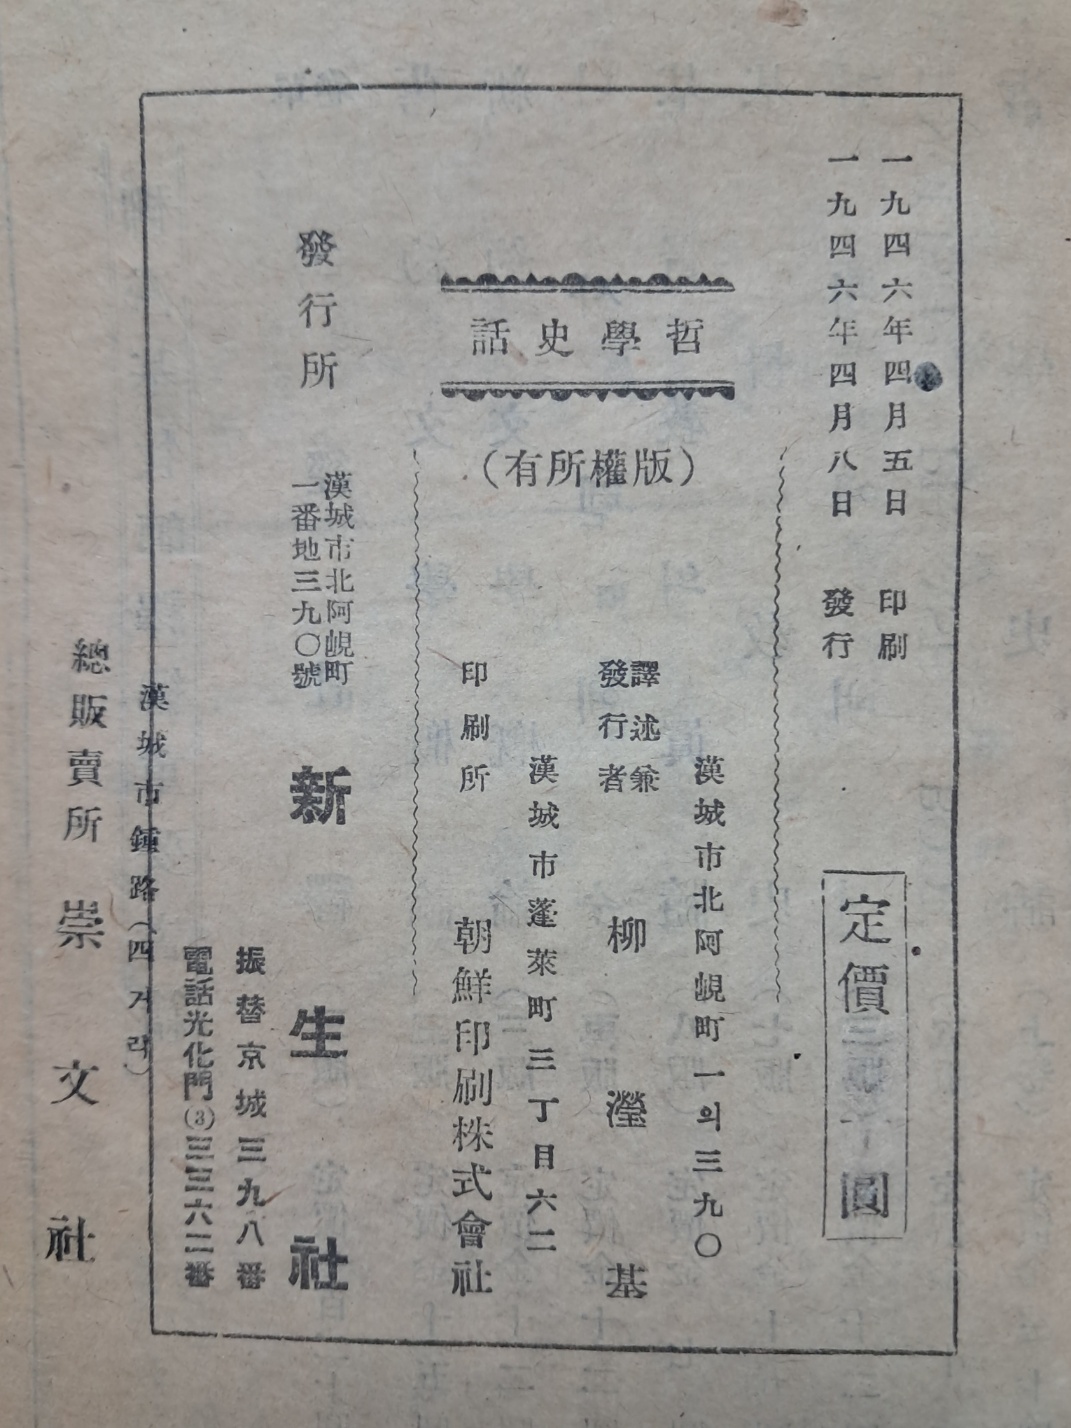 一九四六年四月五日 印刷
一九四六年四月八日 發行
定價 圓
哲學史話
(版權所有)
漢城市北阿峴町一의三九〇
譯述兼
發行者
柳瀅基
漢城市蓬萊町三丁目六二
印刷所 朝鮮印刷株式會社
發行所
漢城市北阿峴町
一番地三九〇號
新生社
振替京城三九八番
電話光化門(3)三三六二番
漢城市鍾路(四거리)
總販賣所 崇文社